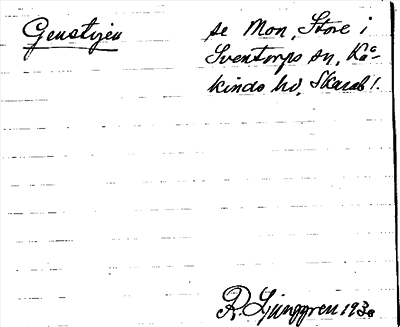 Genstigen
se Mon, Store i
Sventorps sn, Kå-
kinds hd, Skarab l.
R. Ljunggren 1930